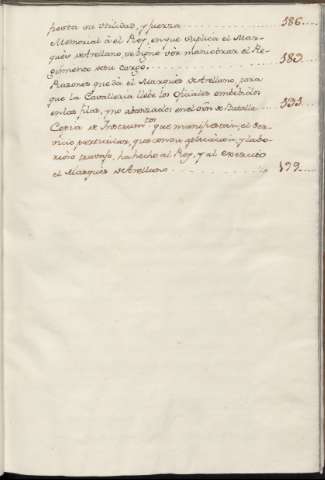 porta su Utilidad, y fuerza ........ 186 ....
Memorial à el Rey, en que suplica el Mar-
qués de Arellano, se digne ver maniobrar el Re-
gimiento de su cargo. ........ 189 ....
Razones que dà el Marqués de Arellano, para
que la Cavalleria lleve los Oficiales embebidos
en las filas, y no abanzados en el dia de Batalla ... 191 ....
Copia de Instrumtos que manifiestan, el Ser-
vicio particular, que con su aplicacion, y labo-
rioso travajo, ha hecho al Rey, y al Exercito
el Marqués de Arellano ........ 199 ....